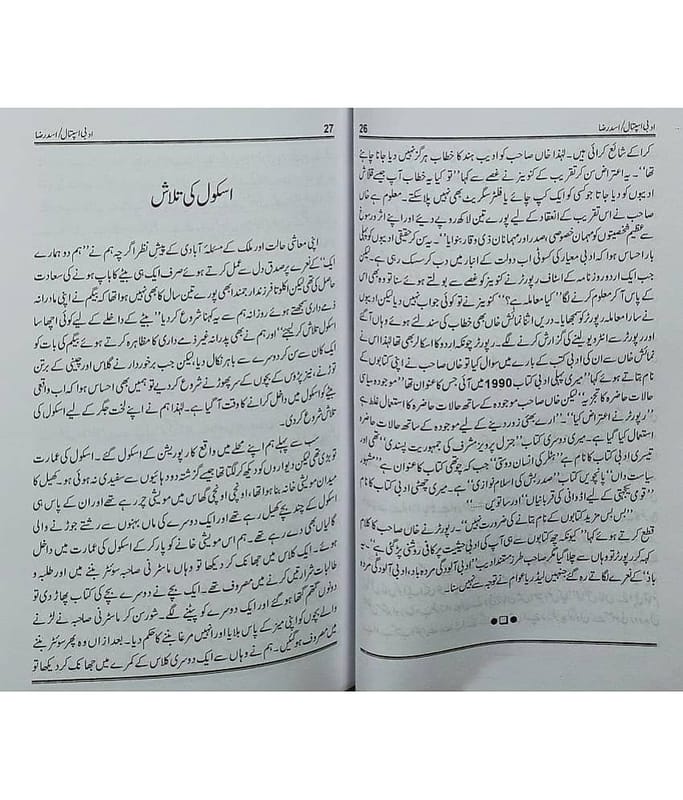 ادبی اسپتال/اسد رضا 26
کرا کے شائع کرائی ہیں۔ لہٰذا خاں صاحب کو ادیب ہند کا خطاب ہرگز نہیں دیا جانا چاہئے
تھا''۔ یہ اعتراض سن کر تقریب کے کنوینر نے غصے سے کہا ''تو کیا یہ خطاب آپ جیسے قلاش
ادیبوں کو دیا جاتا جو کسی کو ایک کپ چائے یا فلٹر سگریٹ بھی نہیں پلا سکتے۔ معلوم ہے خاں
صاحب نے اس تقریب کے انعقاد کے لیے پورے تین لاکھ روپے دیئے اور اپنے اثر و رسوخ
سے عظیم شخصیتوں کو مہمان خصوصی، صدر اور مہمانان ذی وقار بنوایا''۔ یہ سن کر حقیقی ادیبوں کو پہلی
بار احساس ہوا کہ ادبی معیار کی سوئی اب دولت کے انبار میں دب کر سسک رہی ہے۔ لیکن
جب ایک اردو روزنامہ کے اسٹاف رپورٹر نے کنوینر کو غصے سے بولتے ہوئے سنا تو وہ بھی اس
کے پاس آ کر معلوم کرنے لگا ''کیا معاملہ ہے؟'' کنوینر نے تو کوئی جواب نہیں دیا لیکن ادیبوں
نے سارا معاملہ رپورٹر کو سمجھایا۔ دریں اثنا نمائش خاں بھی خطاب کی سند لئے ہوئے وہاں آ گئے
اور رپورٹر سے انٹرویو لینے کی گزارش کرنے لگے۔ رپورٹر چونکہ اردو کا اسکالر بھی تھا لہٰذا اس نے
نمائش خاں سے ان کی ادبی کتب کے بارے میں سوال کیا تو خاں صاحب نے اپنی کتابوں کے
نام بتاتے ہوئے کہا ''میری پہلی ادبی کتاب 1990 میں آئی جس کا عنوان تھا ''موجودہ سیاسی
حالات حاضرہ کا تجزیہ'' لیکن خاں صاحب موجودہ کے ساتھ حالات حاضرہ کا استعمال غلط ہے
''رپورٹر نے اعتراض کیا''۔ ''ارے بھئی زور دینے کے لیے موجودہ کے ساتھ حالات حاضرہ
استعمال کیا گیا ہے۔ میری دوسری کتاب ''جنرل پرویز مشرف کی جمہوریت پسندی'' تھی اور
تیسری ادبی کتاب کا نام ہے ''ہٹلر کی انسان دوستی'' جب کہ چوتھی کتاب کا عنوان ہے ''مشہور
سیاست داں'' پانچویں کتاب ''صدر بش کی اسلام نوازی'' ہے۔ میری چھٹی ادبی کتاب کا نام
''قومی یکجہتی کے لیے اڈوانی کی قربانیاں'' اور ساتویں......''
''بس بس مزید کتابوں کے نام بتانے کی ضرورت نہیں''۔ رپورٹر نے خاں صاحب کا کلام
قطع کرتے ہوئے کہا ''کیونکہ چھ کتابوں سے ہی آپ کی ادبی حیثیت پر کافی روشنی پڑ گئی ہے''۔ یہ
کہہ کر رپورٹر تو وہاں سے چلا گیا مگر صاحب طرز مستند ادیب ''ادبی آلودگی مردہ باد، ادبی آلودگی مردہ
باد'' کے نعرے لگاتے رہ گئے جنہیں لیڈر یا عوام نے توجہ سے نہیں سنا۔
27 ادبی اسپتال/اسد رضا
اسکول کی تلاش
اپنی معاشی حالت اور ملک کے مسئلہ آبادی کے پیش نظر اگرچہ ہم نے ''ہم دو ہمارے
ایک'' کے نعرے پر صدق دل سے عمل کرتے ہوئے صرف ایک ہی بیٹے کا باپ ہونے کی سعادت
حاصل کی تھی لیکن اکلوتا فرزند ارجمند ابھی پورے تین سال کا بھی نہیں ہوا تھا کہ بیگم نے اپنی مادرانہ
ذمے داری سمجھتے ہوئے روزانہ ہم سے یہ کہنا شروع کر دیا ''بیٹے کے داخلے کے لیے کوئی اچھا سا
اسکول تلاش کر لیجئے'' اور ہم نے بھی پدرانہ غیر ذمے داری کا مظاہرہ کرتے ہوئے بیگم کی بات کو
ایک کان سے سن کر دوسرے سے باہر نکال دیا، لیکن جب برخوردار نے گلاس اور چینی کے برتن
توڑنے، نیز پڑوس کے بچوں کے سر پھوڑنے شروع کر دیے تو ہمیں بھی احساس ہوا کہ اب واقعی
بیٹے کو اسکول میں داخل کرانے کا وقت آ گیا ہے۔ لہٰذا ہم نے اپنے لخت جگر کے لیے اسکول کی
تلاش شروع کر دی۔
سب سے پہلے ہم اپنے محلے میں واقع کارپوریشن کے اسکول گئے۔ اسکول کی عمارت
تو بڑی تھی لیکن دیواروں کو دیکھ کر لگتا تھا جیسے گزشتہ دو دہائیوں سے سفیدی نہ ہوئی ہو۔ کھیل کا
میدان مویشی خانہ بنا ہوا تھا، اونچی اونچی گھاس میں مویشی چر رہے تھے اور ان کے پاس ہی
اسکول کے چند بچے کھیل رہے تھے اور ایک دوسرے کی ماں بہنوں سے رشتے جوڑنے والی
گالیاں بھی دے رہے تھے۔ ہم اس مویشی خانے کو پار کر کے اسکول کی عمارت میں داخل
ہوئے۔ ایک کلاس میں جھانک کر دیکھا تو وہاں ماسٹرنی صاحبہ سوئٹر بننے میں اور طلبہ و
طالبات شرارتیں کرنے میں مصروف تھے۔ ایک بچے نے دوسرے بچے کی کتاب پھاڑ دی تو
دونوں گتھم گتھا ہو گئے اور ایک دوسرے کو پیٹنے لگے۔ شور سن کر ماسٹرنی صاحبہ نے لڑنے
والے بچوں کو اپنی میز کے پاس بلایا اور انہیں مرغا بننے کا حکم دیا۔ بعد ازاں وہ پھر سوئٹر بننے
میں مصروف ہو گئیں۔ ہم نے وہاں سے ایک دوسری کلاس کے کمرے میں جھانک کر دیکھا تو